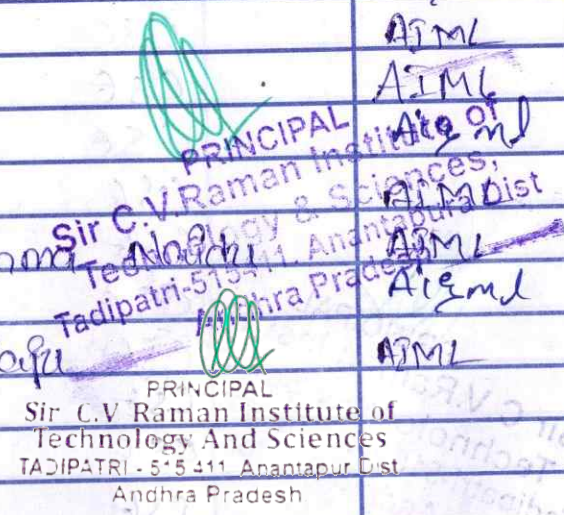 AIML
AIML
PRINCIPAL
AI & ml
Sir C.V.Raman Institute of
AIML
Technology & Sciences,
Naidu
AIML
Tadipatri-515411. Anantapura Dist
Andhra Pradesh
AI & ml
AIML
PRINCIPAL
Sir C.V Raman Institute of
Technology And Sciences
TADIPATRI - 515 411 Anantapur Dist
Andhra Pradesh